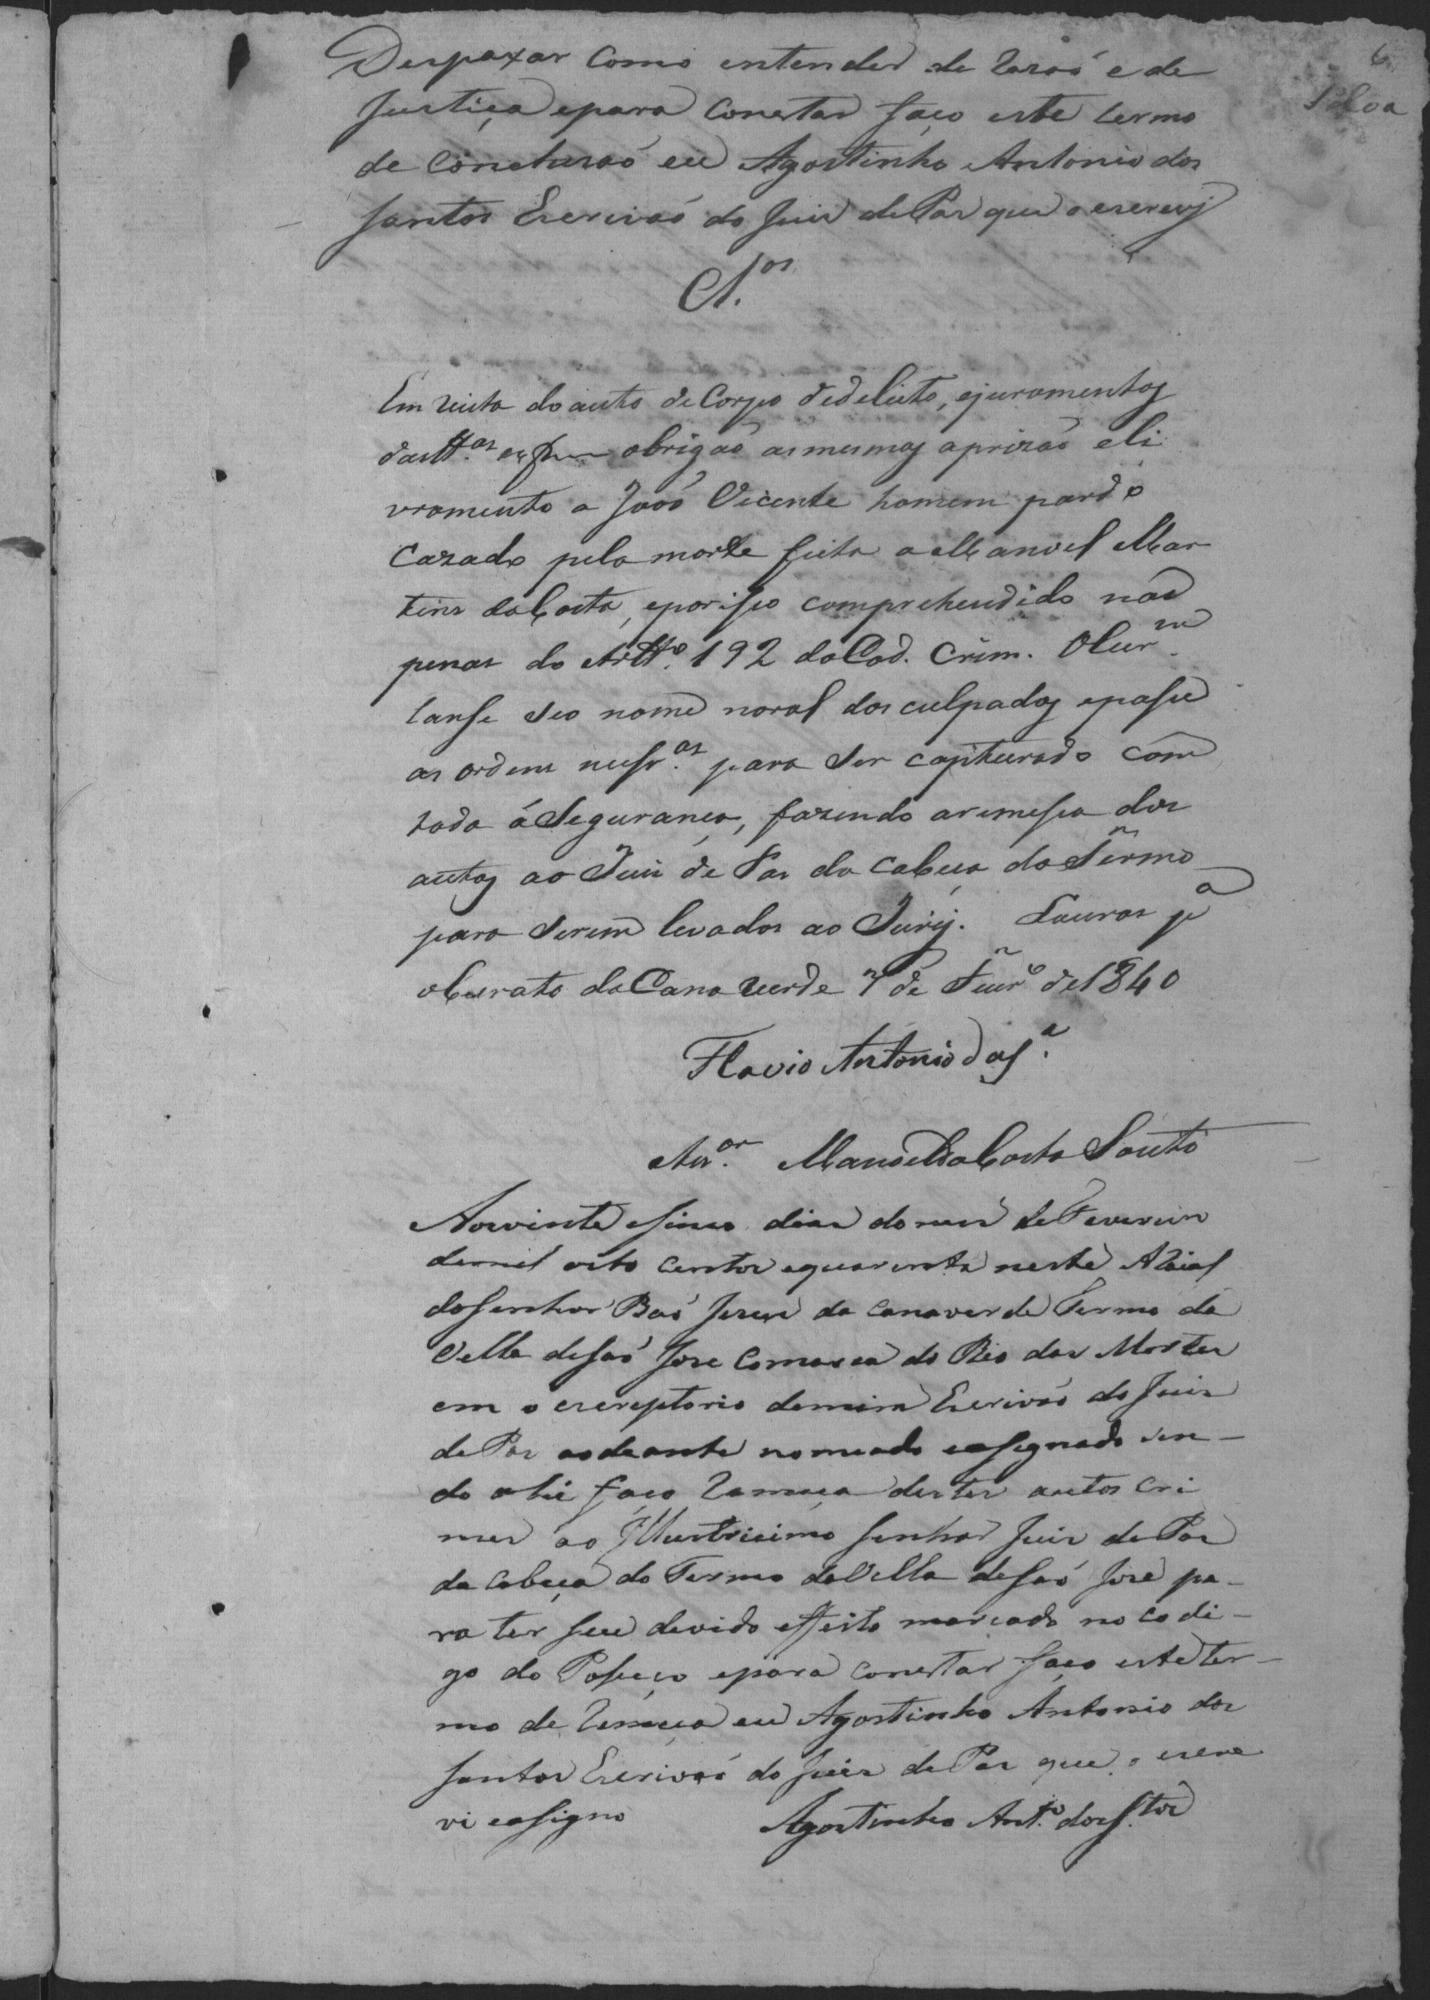 6
Silva
Despaxar Como entender de Razaõ e de
Justiça epara Constar faço este termo
de Concluzaõ eu Agostinho Antonio dos
Santos Escrivaõ do Juis de Pas que o escrevy
Cl.os
Em vista do auto de Corpo de delicto, ejuramentos
das tt.as obrigaõ asmesmas aprizaõ eli
vramento a Joaõ Vicente homem pardo
Cazado pela morte feita a Manoel Mar
tins da Costa, eporisso comprehendido nas
penas do Artt.o 192 do Cod. Crim. O Escr.m
lanse seo nome norol dos culpados epasse
as ordens nessr.as para ser capturado com
toda á Segurança, fazendo aremessa dos
autos ao Juis de Pas da Cabeça do Termo
para serem levados ao Jury. Lavras p.a
oCurato da Cana verde 7 de Fevr.o de 1840
Flavio Antonio da S.a
Manoel da Costa Souto
Aos vinte e sinco dias do mes de Fevereiro
de mil oito centos equarenta neste Araial
do Senhor Bom Jesus da Canaverde Termo da
Villa de Saõ Jose Comarca do Rio das Mortes
em o escreptorio demim Escrivaõ do Juis
de Pas aodeante nomeado easignado sen-
do ahi faço Remeça destes autos Cri
mes ao Illustricimo Senhor Juis de Pas
da Cabeça do Termo da Villa de Saõ Jose pa-
ra ter seu devido effeito marcado no Codi-
go do Proseço epara Constar faço este ter-
mo de Remeça eu Agostinho Antonio dos
Santos Escrivaõ do Juis de Pas que o escre
vi easigno Agostinho Ant.o dos S.tos